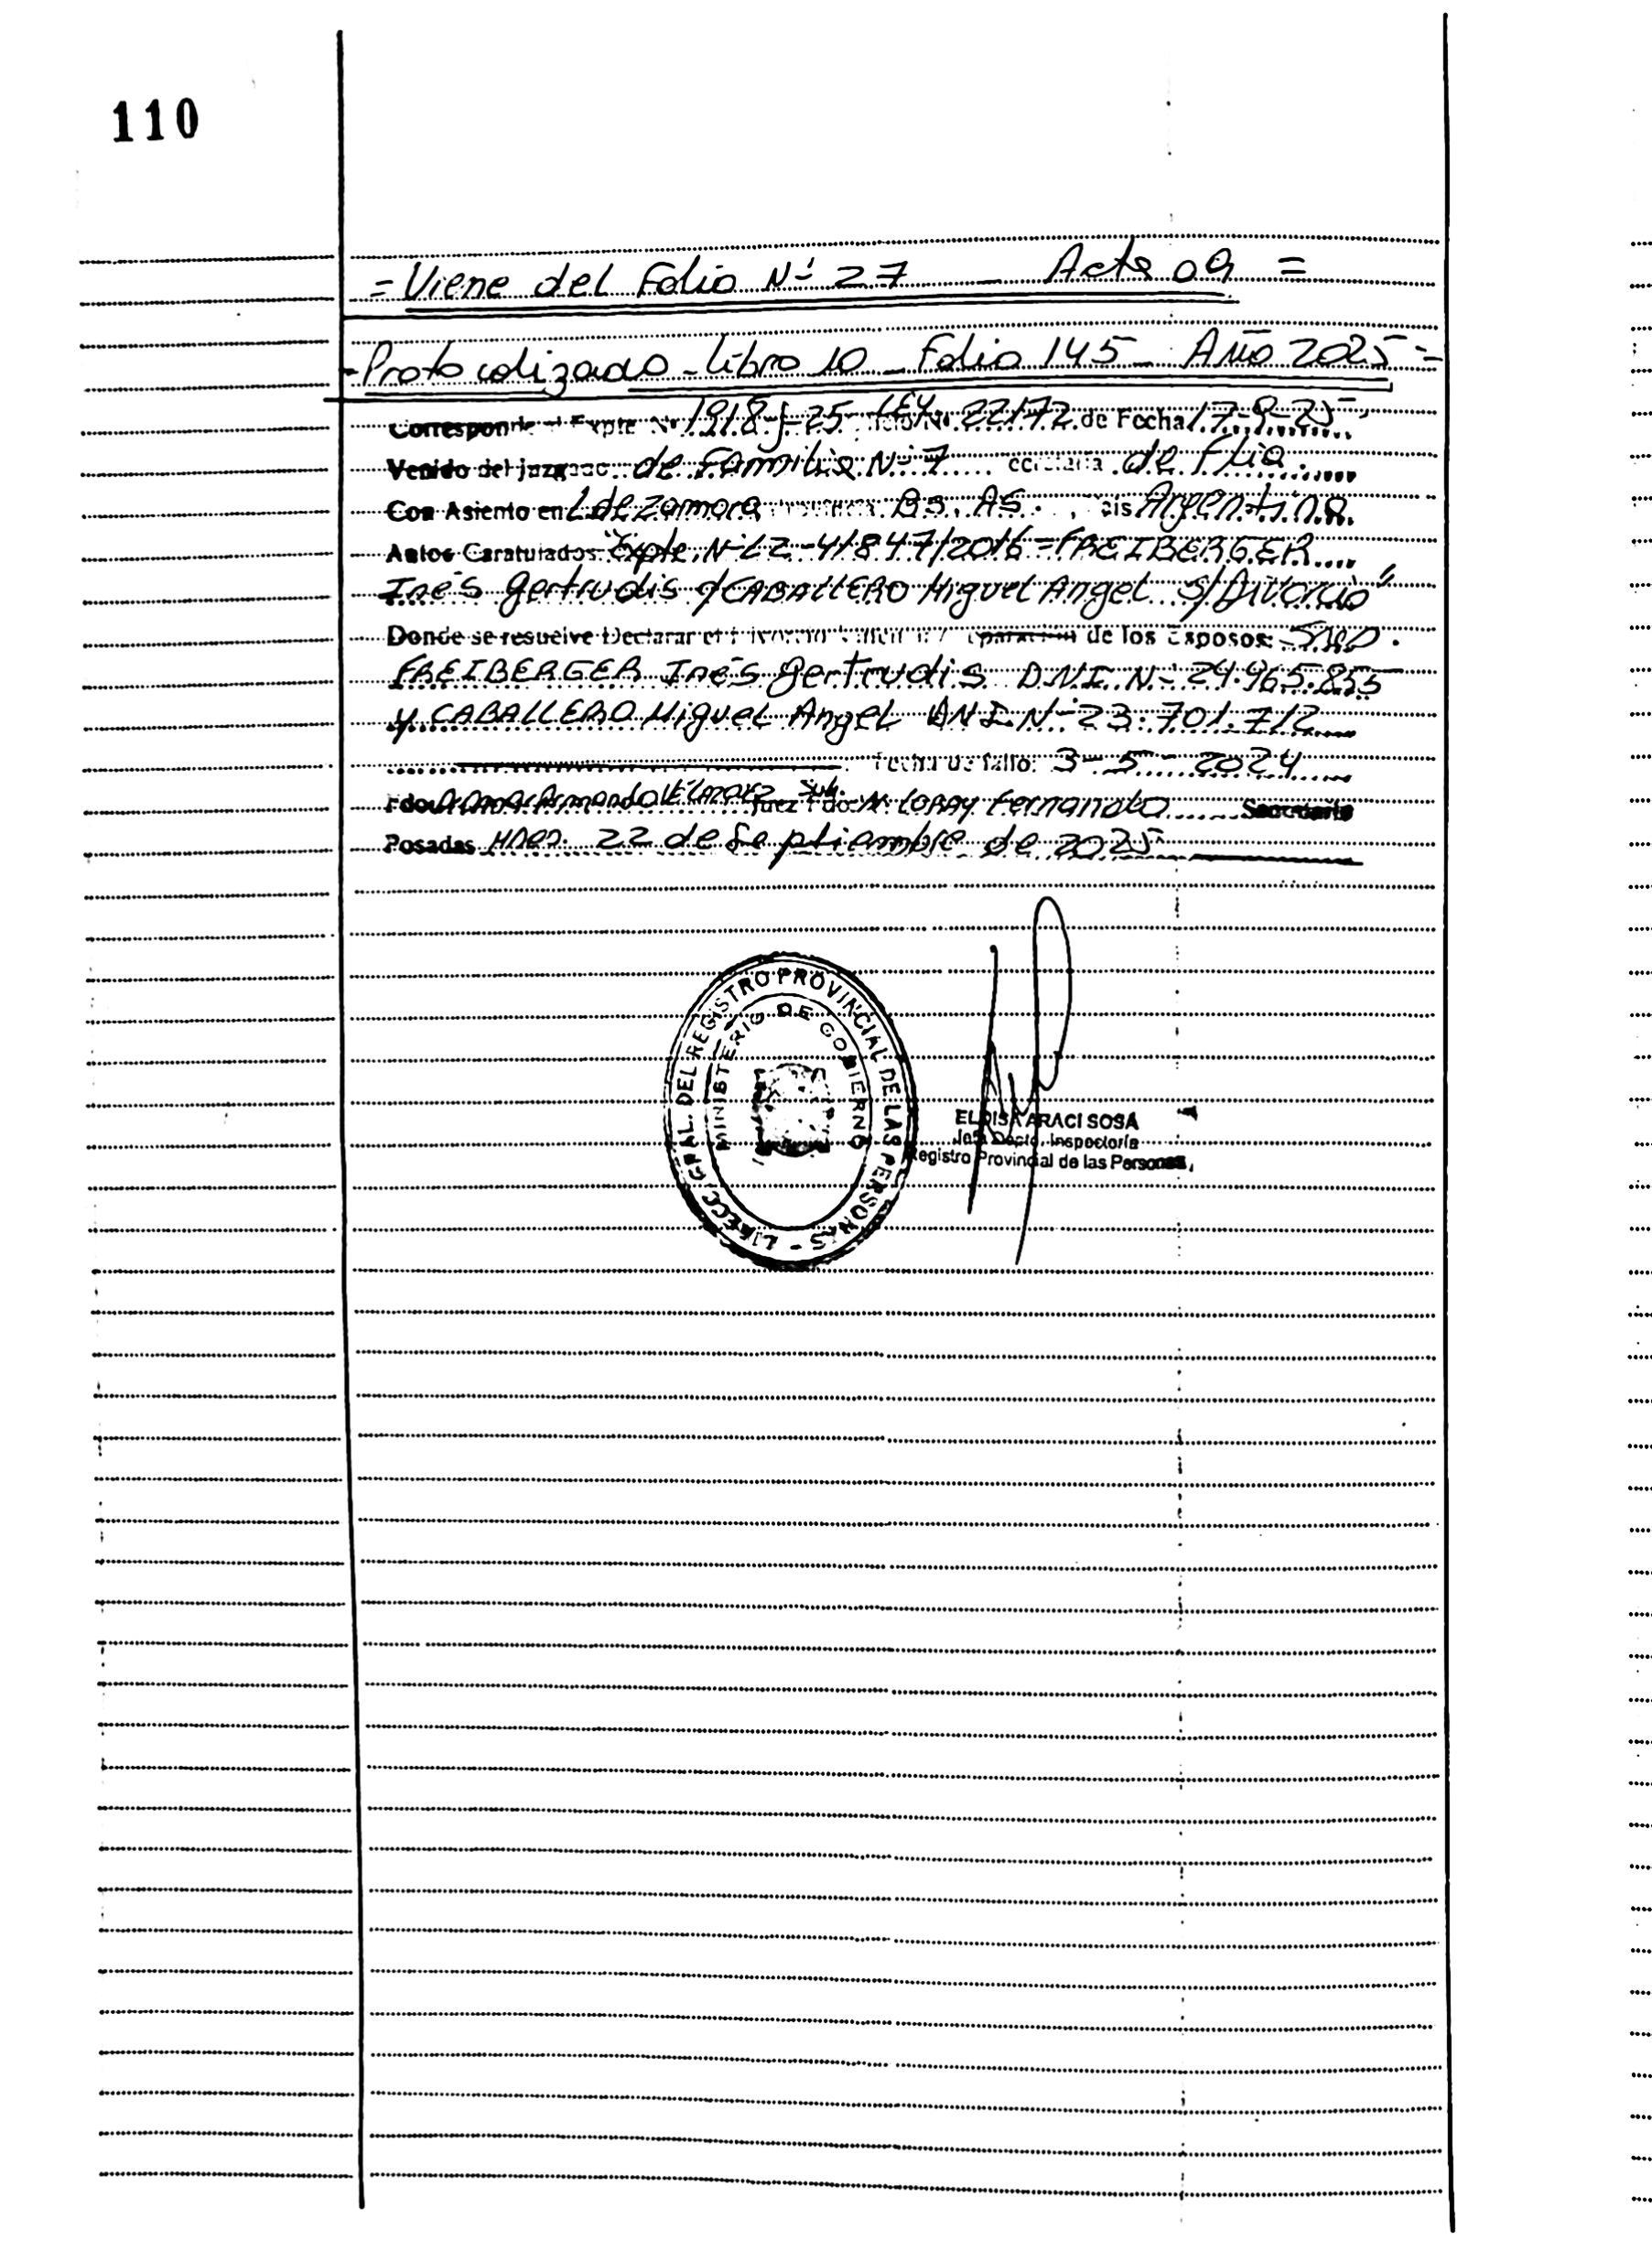 110
= Viene del Folio Nº 27 — Acta 09 =
- Protocolizado - Libro 10 - Folio 145 - Año 2025 =
Corresponde al Expte Nº 1918-J-25- LEY Nº 22172 de Fecha 17-9-25
Venido del juzgado de Familia Nº 7 de Flia.
Con Asiento en L de Zamora Bs. As. Argentina.
Autos Caratulados "Expte. Nº LZ-41847/2016 = FREIBERGER
Inés Gertrudis c/ CABALLERO Miguel Angel s/ Divorcio"
Donde se resuelve Declarar el de los Esposos:
FREIBERGER Inés Gertrudis D.N.I. Nº 24.965.855
y CABALLERO Miguel Angel DNI. Nº 23.701.712
fecha de fallo: 3-5-2024
Fdo: Armando Juez Fdo: LORAY Fernando Secretario
Posadas Mnes. 22 de Septiembre de 2025
DIRECC. GRAL. DEL REGISTRO PROVINCIAL DE LAS PERSONAS -
MINISTERIO DE GOBIERNO
ELOISA ARACI SOSA
Jefa Depto. Inspectoría
Registro Provincial de las Personas